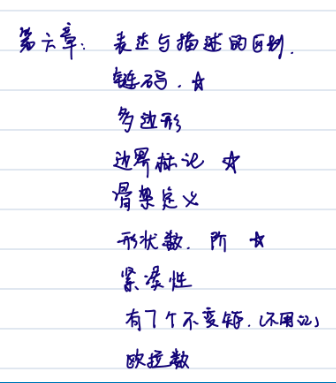 第六章: 表达与描述的区别.
链码. ☆
多边形
边界标记 ☆
骨架定义
形状数. 阶 ☆
紧凑性
有7个不变矩. (不用记)
欧拉数